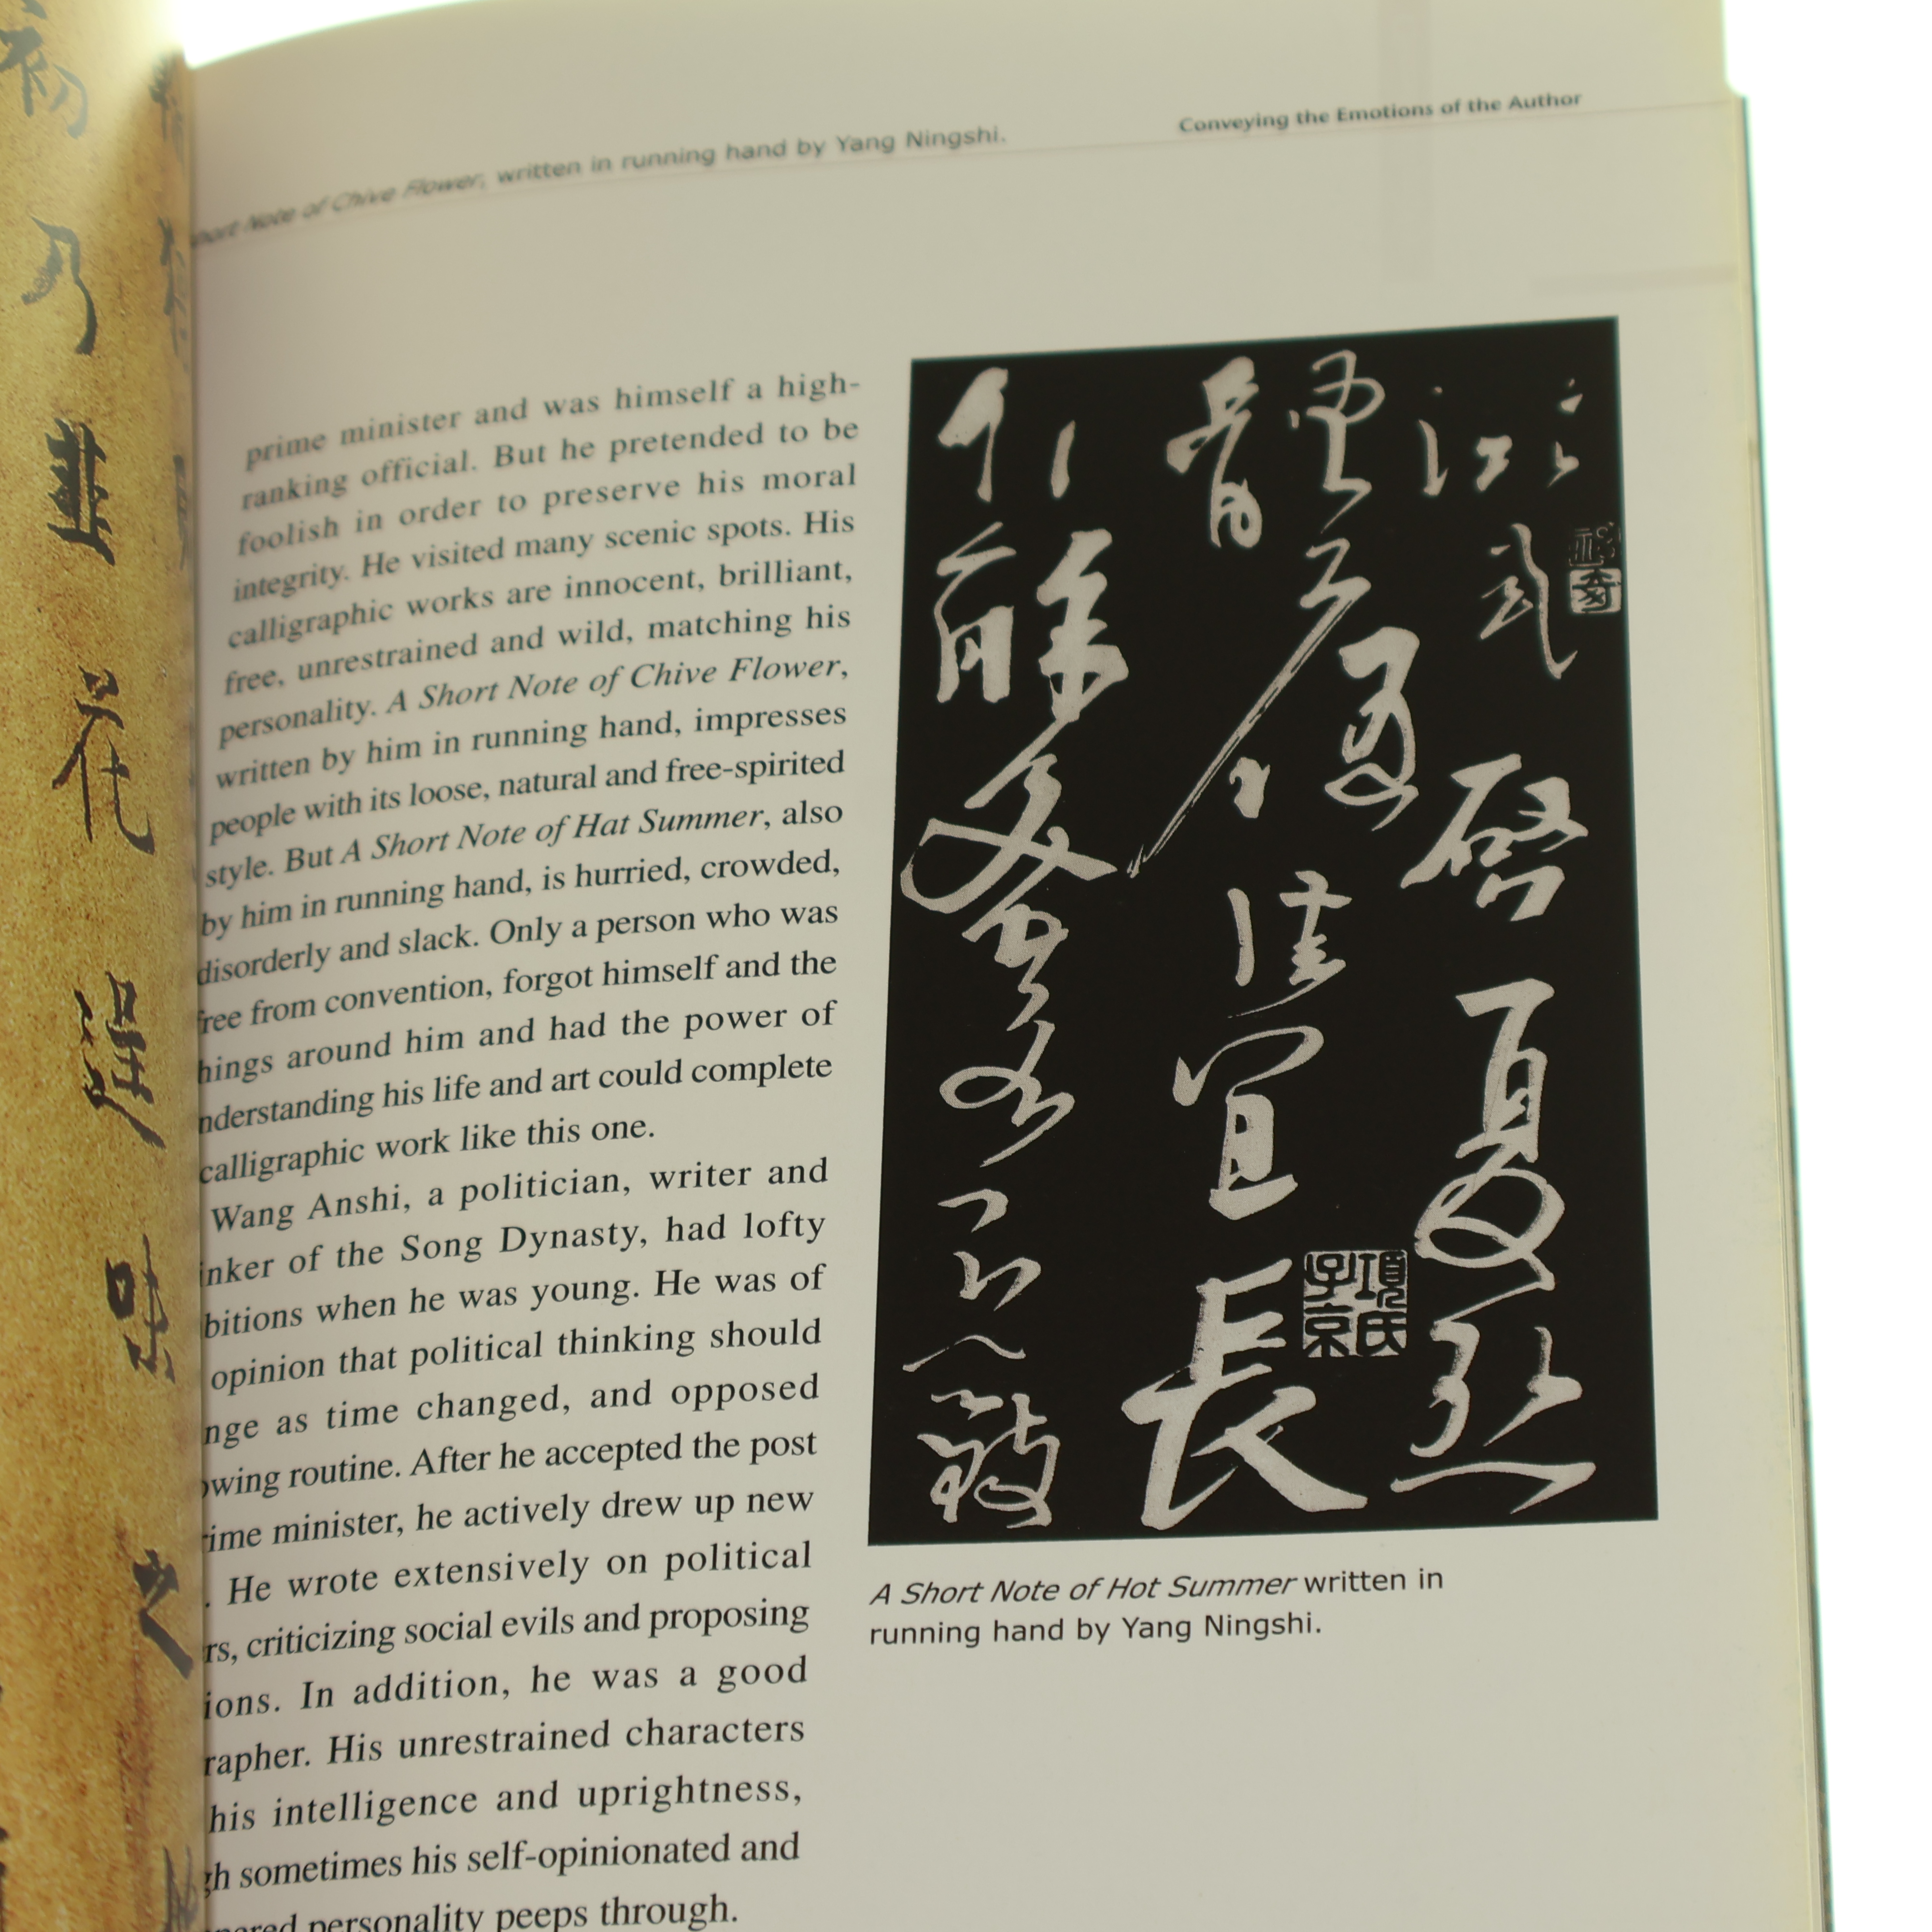 初
乃
韭
花
逞
味
之
Short Note of Chive Flower, written in running hand by Yang Ningshi.
Conveying the Emotions of the Author
prime minister and was himself a high-
ranking official. But he pretended to be
foolish in order to preserve his moral
integrity. He visited many scenic spots. His
calligraphic works are innocent, brilliant,
free, unrestrained and wild, matching his
personality. A Short Note of Chive Flower,
written by him in running hand, impresses
people with its loose, natural and free-spirited
style. But A Short Note of Hat Summer, also
by him in running hand, is hurried, crowded,
disorderly and slack. Only a person who was
free from convention, forgot himself and the
hings around him and had the power of
nderstanding his life and art could complete
calligraphic work like this one.
Wang Anshi, a politician, writer and
inker of the Song Dynasty, had lofty
bitions when he was young. He was of
opinion that political thinking should
nge as time changed, and opposed
owing routine. After he accepted the post
rime minister, he actively drew up new
. He wrote extensively on political
rs, criticizing social evils and proposing
ions. In addition, he was a good
rapher. His unrestrained characters
his intelligence and uprightness,
gh sometimes his self-opinionated and
pered personality peeps through.
凝式
啓夏熱
體履
佳宜長
項氏子京
A Short Note of Hot Summer written in
running hand by Yang Ningshi.